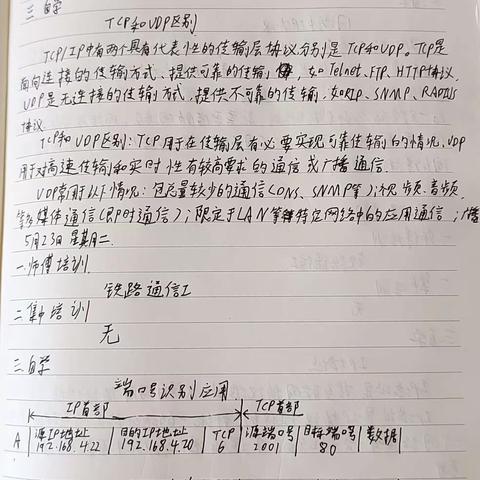 三 自学
TCP和UDP区别
TCP/IP中有两个具有代表性的传输层协议,分别是TCP和UDP,TCP是
面向连接的传输方式、提供可靠的传输,如Telnet、FTP、HTTP协议,
UDP是无连接的传输方式,提供不可靠的传输,如RIP、SNMP、RADIUS
协议
TCP和UDP区别:TCP用于在传输层有必要实现可靠传输的情况,UDP
用于对高速传输和实时性有较高要求的通信或广播通信.
UDP常用于以下情况:包总量较少的通信(DNS、SNMP等);视频、音频
等多媒体通信(即时通信);限定于LAN等特定网络中的应用通信;广播
5月23日 星期二
一.师傅培训
铁路通信工
二集中培训
无
三自学
端口号识别应用
IP首部 TCP首部
A 源IP地址 192.168.4.22 目的IP地址 192.168.4.20 TCP 6 源端口号 2001 目标端口号 80 数据